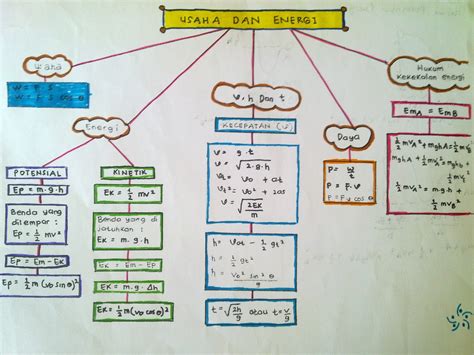 USAHA DAN ENERGI
Usaha
W = F . S
W = F S cos θ
Energi
POTENSIAL
Ep = m.g.h
Benda yang
dilempar :
Ep = 1/2 mv²
Ep = Em - Ek
Ep = 1/2 m (vo sin θ)²
KINETIK
Ek = 1/2 mv²
Benda yang di
jatuhkan :
Ek = m.g.h
Ek = Em - Ep
Ek = m.g.Δh
Ek = 1/2 m (vo cos θ)²
v, h Dan t.
KECEPATAN (v)
v = g.t
v = √2.g.h
vt = vo + at
vt² = vo² + 2as
v = √2Ek/m
h = vot - 1/2 gt²
h = 1/2 gt²
h = vo² sin² θ/g
t = √2h/g atau t = v/g
Daya
P = W/t
P = F.v
P = Fv cos θ
Hukum
kekekalan energi
EmA = EmB
1/2 mvA² + mghA = 1/2 mv²
mghA + 1/2 mvA² =
1/2 mvA² + mgh =
1/2 mvB²